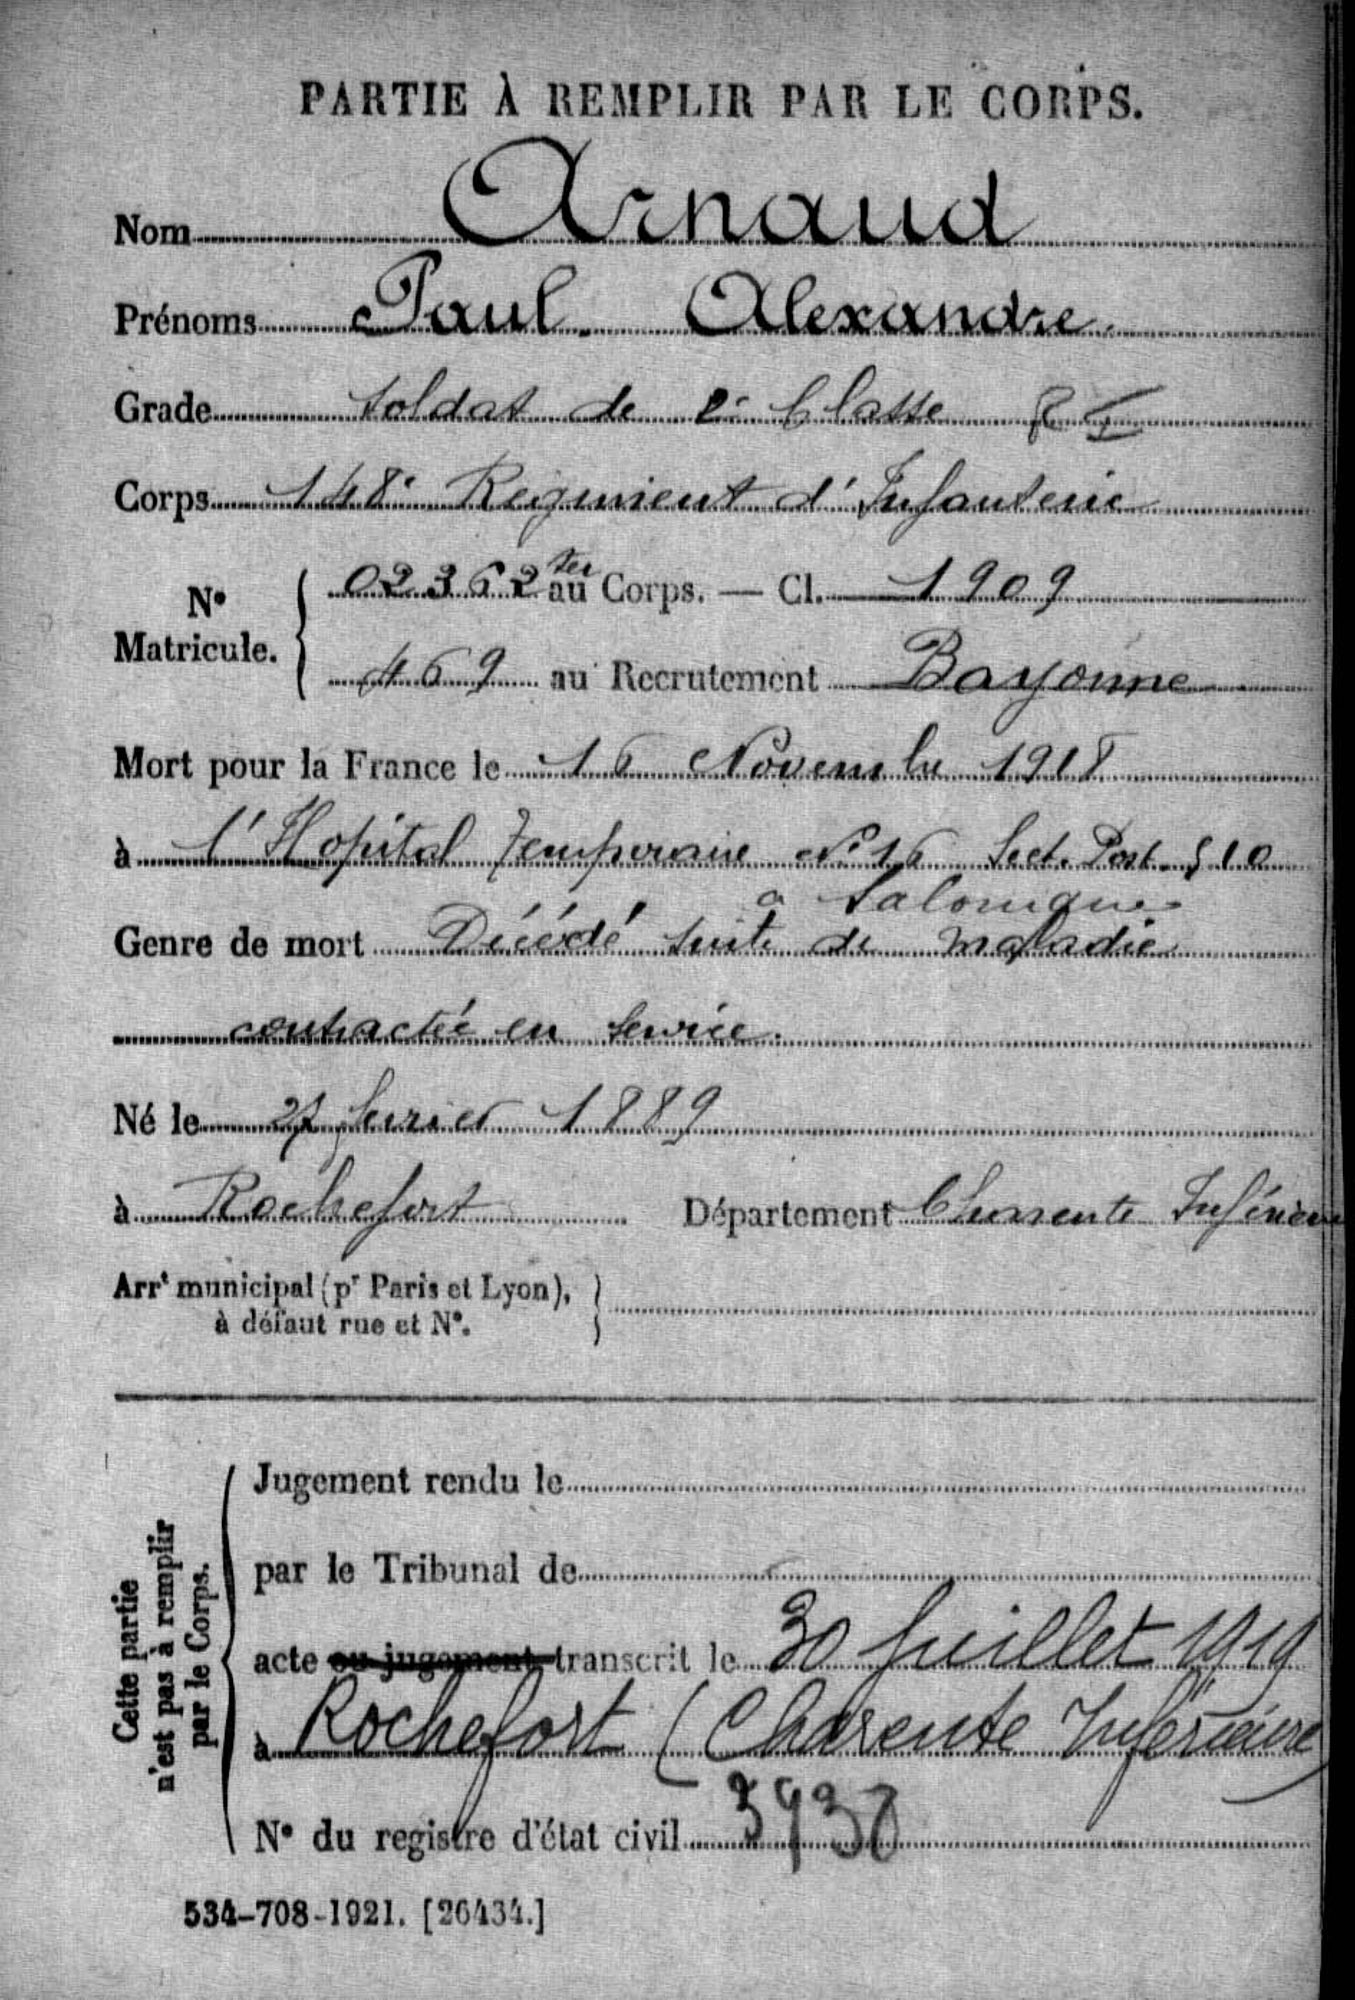 PARTIE À REMPLIR PAR LE CORPS.
Nom Arnaud
Prénoms Paul Alexandre
Grade Soldat de 2e Classe
Corps 148e Regiment d'Infanterie
No Matricule. 02362 ter au Corps. — Cl. 1909
469 au Recrutement Bayonne
Mort pour la France le 16 Novembre 1918
à l'Hopital Temporaire No 16 Sect. Post. 510
a Salonique
Genre de mort Décédé suite de maladie
contractée en service.
Né le 27 fevrier 1889
à Rochefort Département Charente Inférieure
Arrt municipal (pr Paris et Lyon), à défaut rue et No.
Cette partie n'est pas à remplir par le Corps.
Jugement rendu le
par le Tribunal de
acte ou jugement transcrit le 30 Juillet 1919
à Rochefort (Charente Inférieure)
No du registre d'état civil
534-708-1921. [26434.]